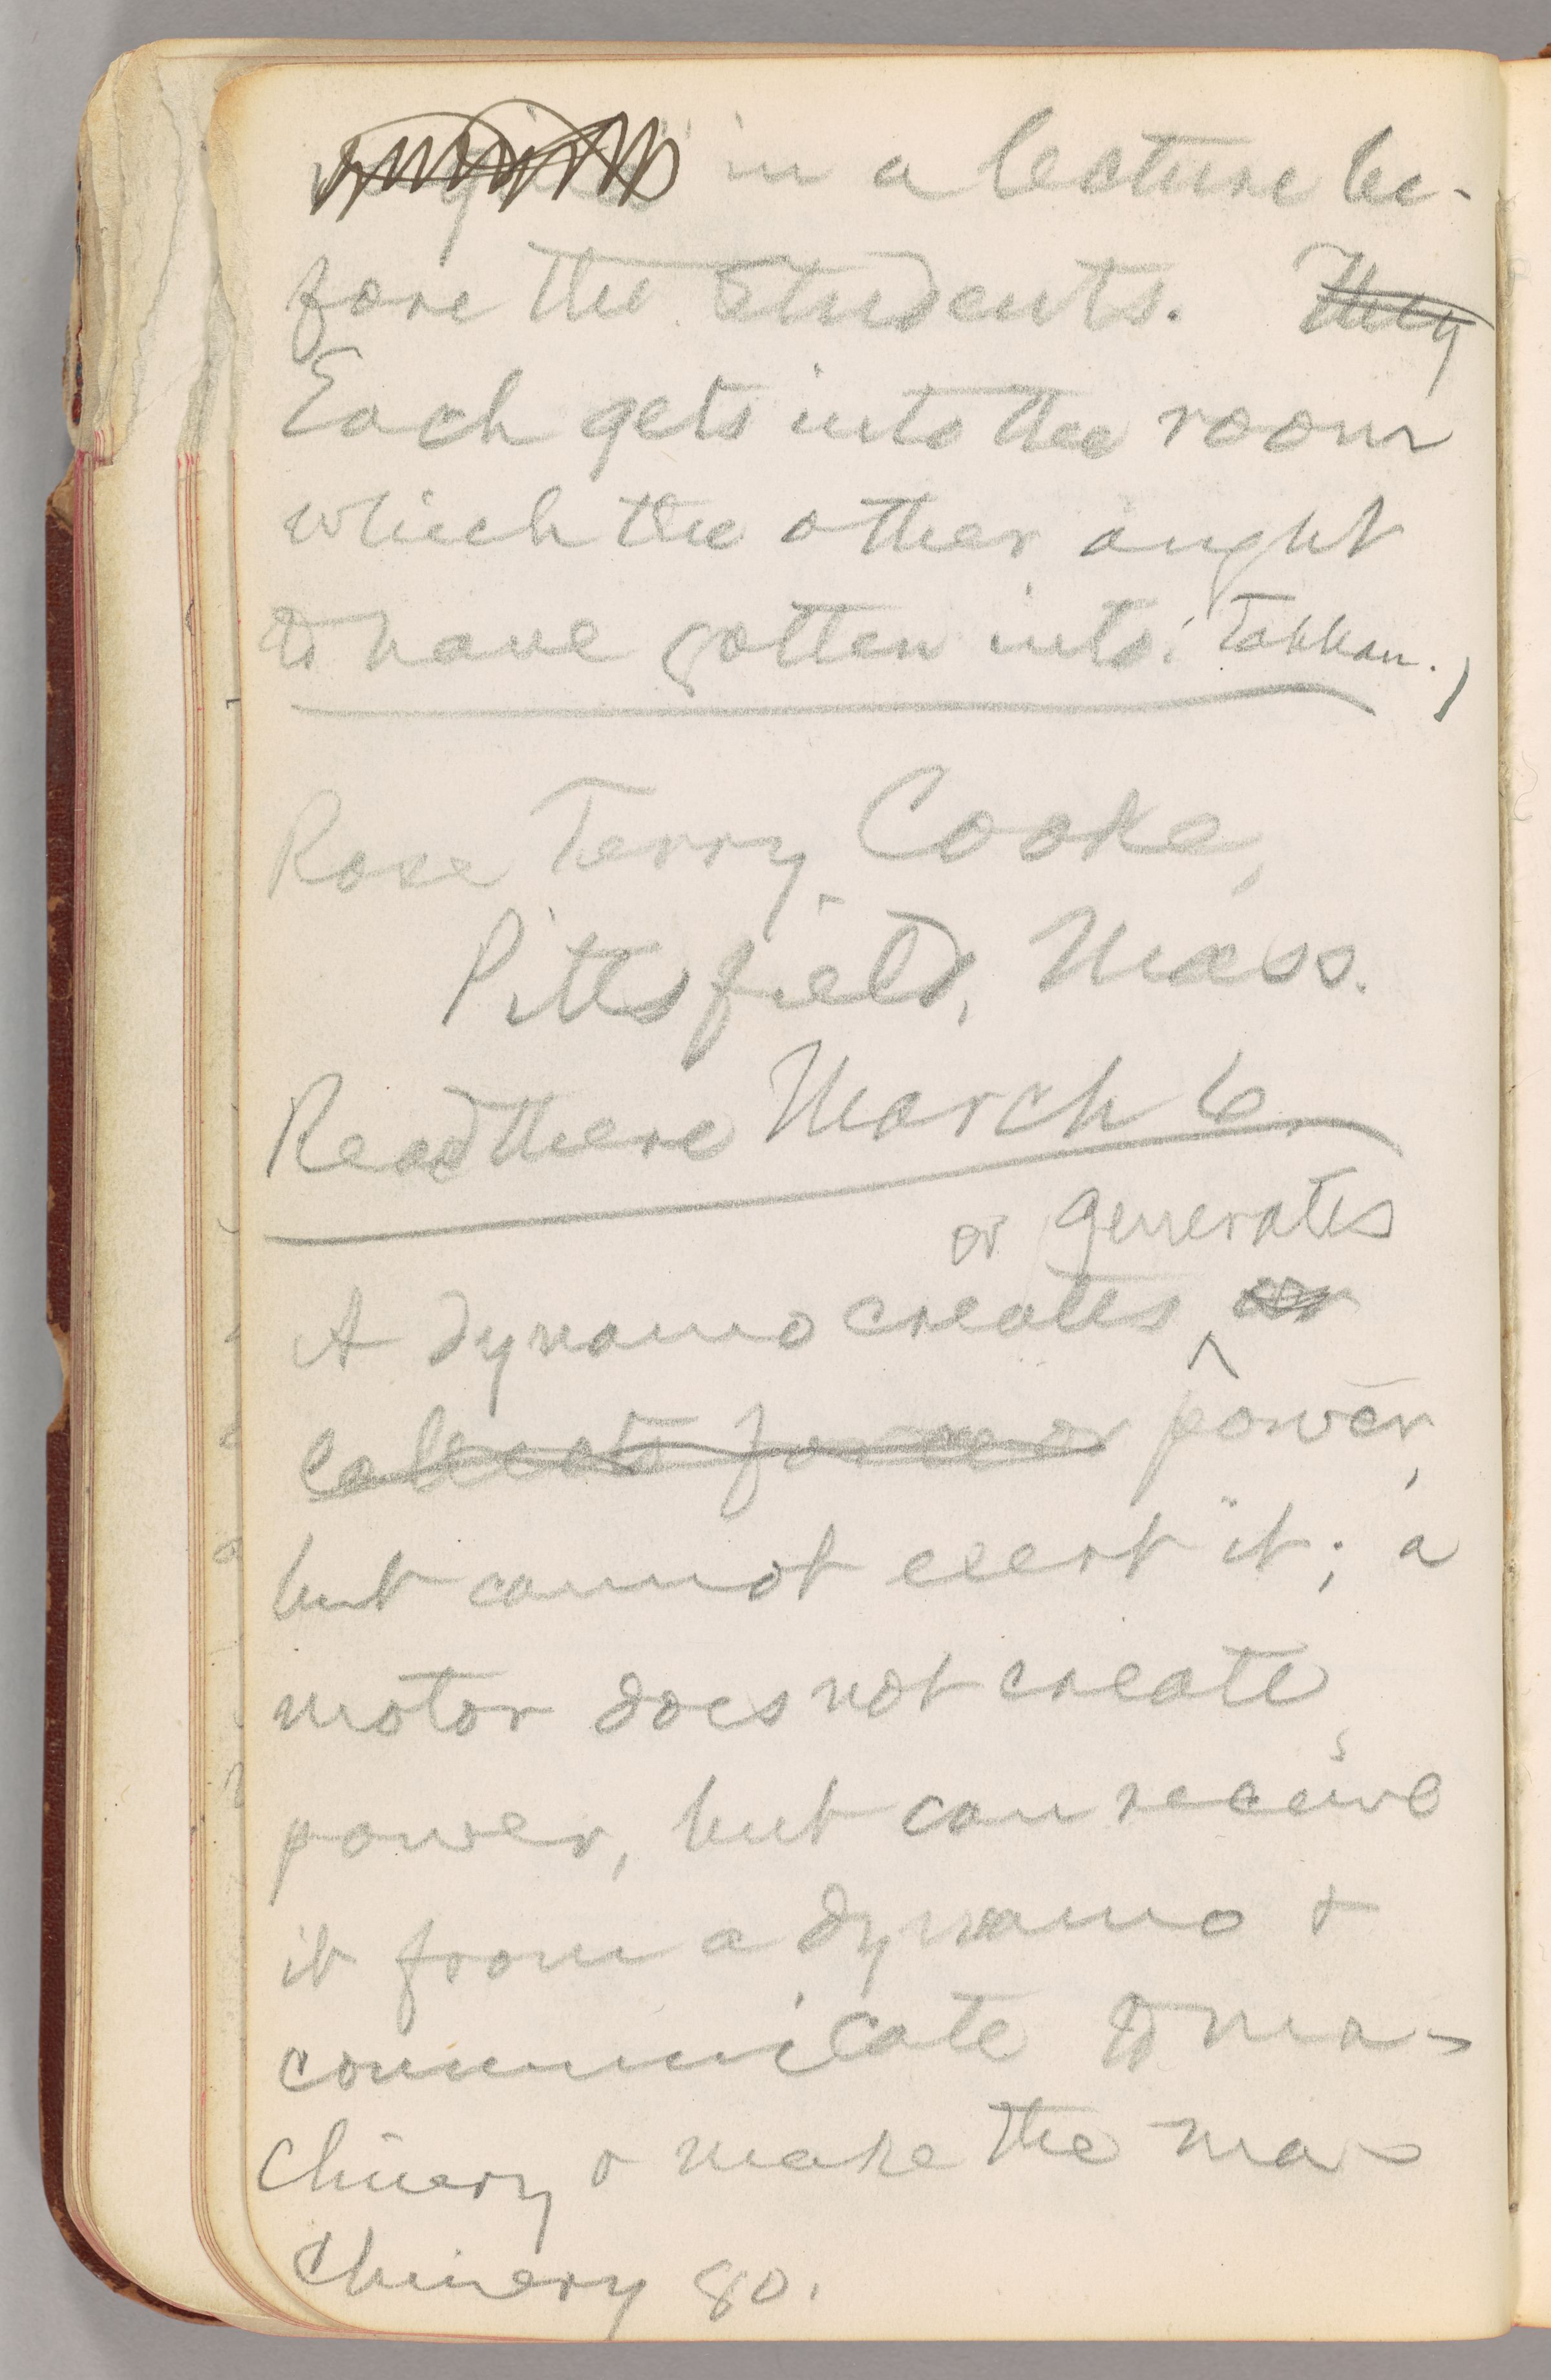 in a lecture be-
fore the Students. They
Each gets into the room
which the other ought
to have gotten into.
Rose Terry Cooke,
Pittsfield, Mass.
Read there March 6.
or generates
A dynamo creates ^ or
force or power,
but cannot exert it; a
motor does not create
power, but can receive
it from a dynamo +
communicate to ma-
chinery & make the ma-
chinery go.